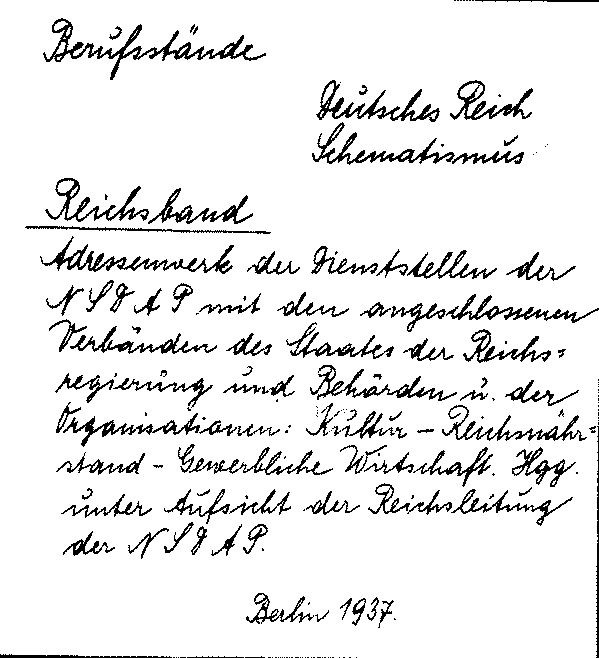 Berufsstände
Deutsches Reich
Schematismus
Reichsband
Adressenwerk der Dienststellen der
NSDAP mit den angeschlossenen
Verbänden des Staates der Reichs=
regierung und Behörden u. der
Organisationen: Kultur – Reichsnähr=
stand – Gewerbliche Wirtschaft. Hgg.
unter Aufsicht der Reichsleitung
der NSDAP.
Berlin 1937.